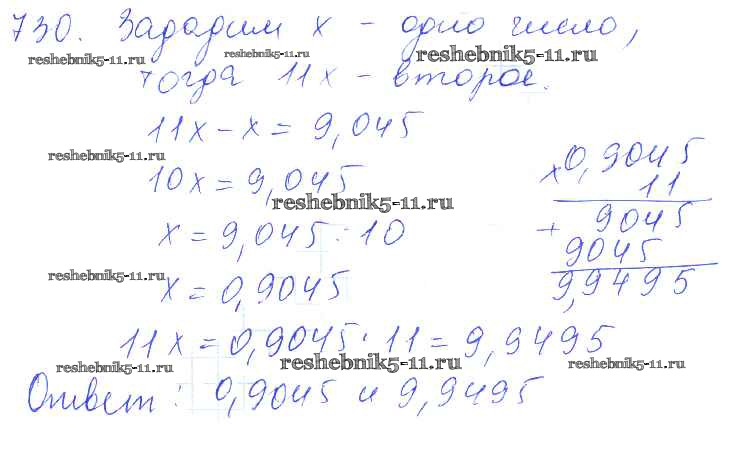 730. Зададим x - одно число,
reshebnik5-11.ru reshebnik5-11.ru reshebnik5-11.ru
тогда 11x - второе.
11x - x = 9,045
reshebnik5-11.ru
10x = 9,045
reshebnik5-11.ru
x = 9,045 : 10
reshebnik5-11.ru
x = 0,9045
× 0,9045
11
+ 9045
9045
9,9495
11x = 0,9045 · 11 = 9,9495
reshebnik5-11.ru reshebnik5-11.ru reshebnik5-11.ru
Ответ: 0,9045 и 9,9495